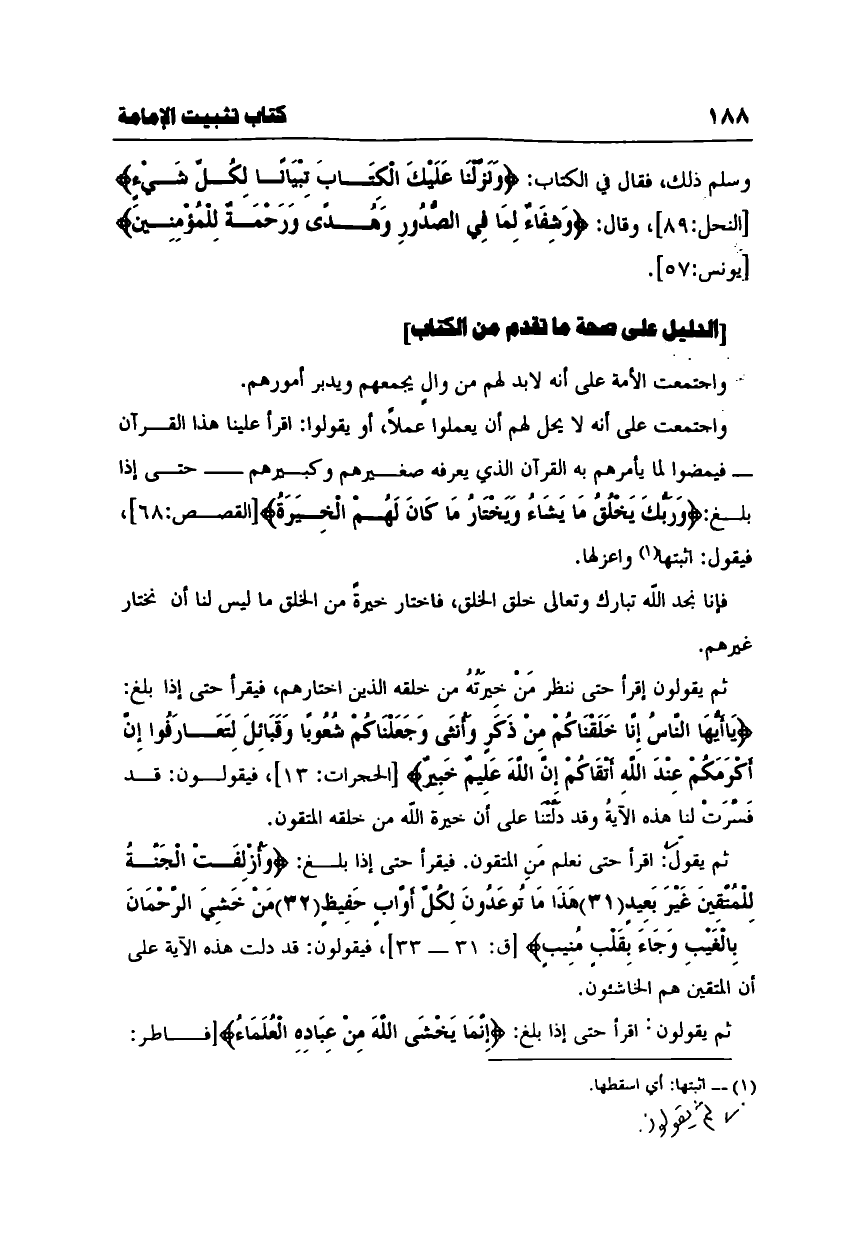 ١٨٨ كتاب تثبيت الإمامة
وسلم ذلك، فقال في الكتاب: ﴿وَنَزَّلْنَا عَلَيْكَ الْكِتَـــابَ تِبْيَانًــا لِكُــلِّ شَــيْءٍ﴾
[النحل:٨٩]، وقال: ﴿وَشِفَاءٌ لِمَا فِي الصُّدُورِ وَهُـــدًى وَرَحْمَـــةٌ لِلْمُؤْمِنِـــينَ﴾
[يونس:٥٧].
[الدليل على صحة ما تقدم من الكتاب]
واجتمعت الأمة على أنه لابد لهم من والٍ يجمعهم ويدبر أمورهم.
واجتمعت على أنه لا يحل لهم أن يعملوا عملاً، أو يقولوا: اقرأ علينا هذا القـــرآن
ـــ فيمضوا لما يأمرهم به القرآن الذي يعرفه صغـــيرهم وكبـــيرهم ـــــ حتـــى إذا
بلـــغ:﴿وَرَبُّكَ يَخْلُقُ مَا يَشَاءُ وَيَخْتَارُ مَا كَانَ لَهُـــمْ الْخِـــيَرَةُ﴾[القصـــص:٦٨]،
فيقول: اثبتها(١) واعزلها.
فإنا نجد الله تبارك وتعالى خلق الخلق، فاختار خيرةً من الخلق ما ليس لنا أن نختار
غيرهم.
ثم يقولون إقرأ حتى ننظر مَنْ خيرَتُهُ من خلقه الذين اختارهم، فيقرأ حتى إذا بلغ:
﴿يَاأَيُّهَا النَّاسُ إِنَّا خَلَقْنَاكُمْ مِنْ ذَكَرٍ وَأُنثَى وَجَعَلْنَاكُمْ شُعُوبًا وَقَبَائِلَ لِتَعَـــارَفُوا إِنَّ
أَكْرَمَكُمْ عِنْدَ اللَّهِ أَتْقَاكُمْ إِنَّ اللَّهَ عَلِيمٌ خَبِيرٌ﴾ [الحجرات: ١٣]، فيقولـــون: قـــد
فَسَّرَتْ لنا هذه الآيةُ وقد دَلَّتْنَا على أن خيرة الله من خلقه المتقون.
ثم يقول: اقرأ حتى نعلم مَنِ المتقون. فيقرأ حتى إذا بلـــغ: ﴿وَأُزْلِفَـــتْ الْجَنَّـــةُ
لِلْمُتَّقِينَ غَيْرَ بَعِيدٍ(٣١)هَذَا مَا تُوعَدُونَ لِكُلِّ أَوَّابٍ حَفِيظٍ(٣٢)مَنْ خَشِيَ الرَّحْمَانَ
بِالْغَيْبِ وَجَاءَ بِقَلْبٍ مُنِيبٍ﴾ [ق: ٣١ ـــ ٣٣]، فيقولون: قد دلت هذه الآية على
أن المتقين هم الخاشئون.
ثم يقولون: اقرأ حتى إذا بلغ: ﴿إِنَّمَا يَخْشَى اللَّهَ مِنْ عِبَادِهِ الْعُلَمَاءُ﴾[فـــــاطر:
(١) ـــ اثبتها: أي اسقطها.
ثم يقولون.